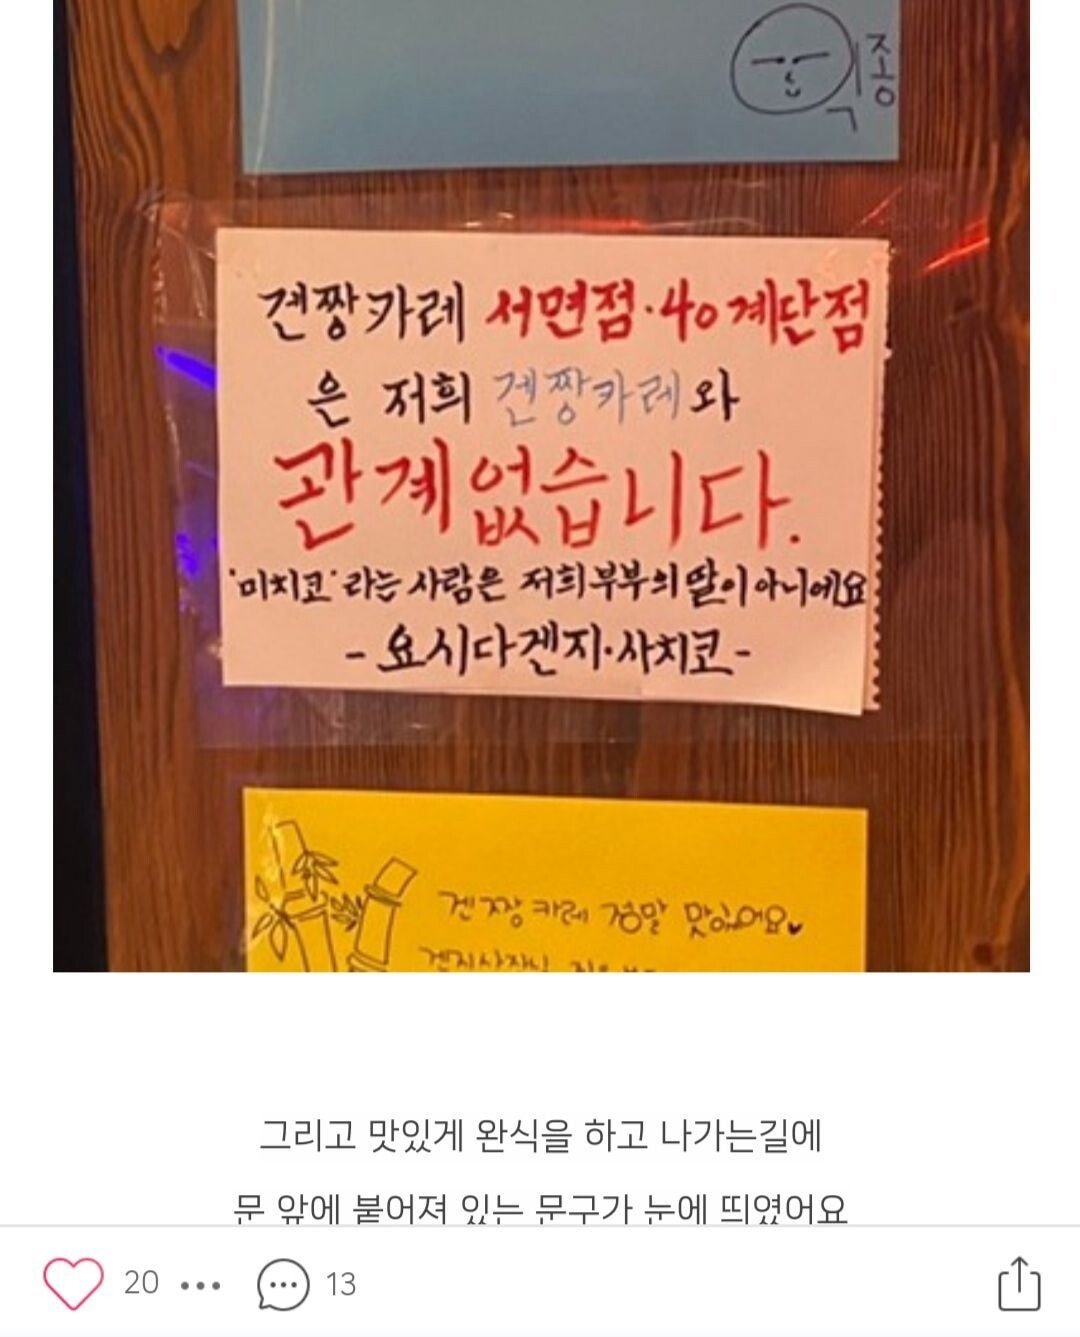 익종
겐짱카레 서면점·40계단점
은 저희 겐짱카레와
관계없습니다.
'미치코'라는 사람은 저희부부의 딸이 아니에요
- 요시다겐지·사치코 -
겐짱카레 정말 맛있어요♥
그리고 맛있게 완식을 하고 나가는길에
문 앞에 붙어져 있는 문구가 눈에 띄였어요
20
13